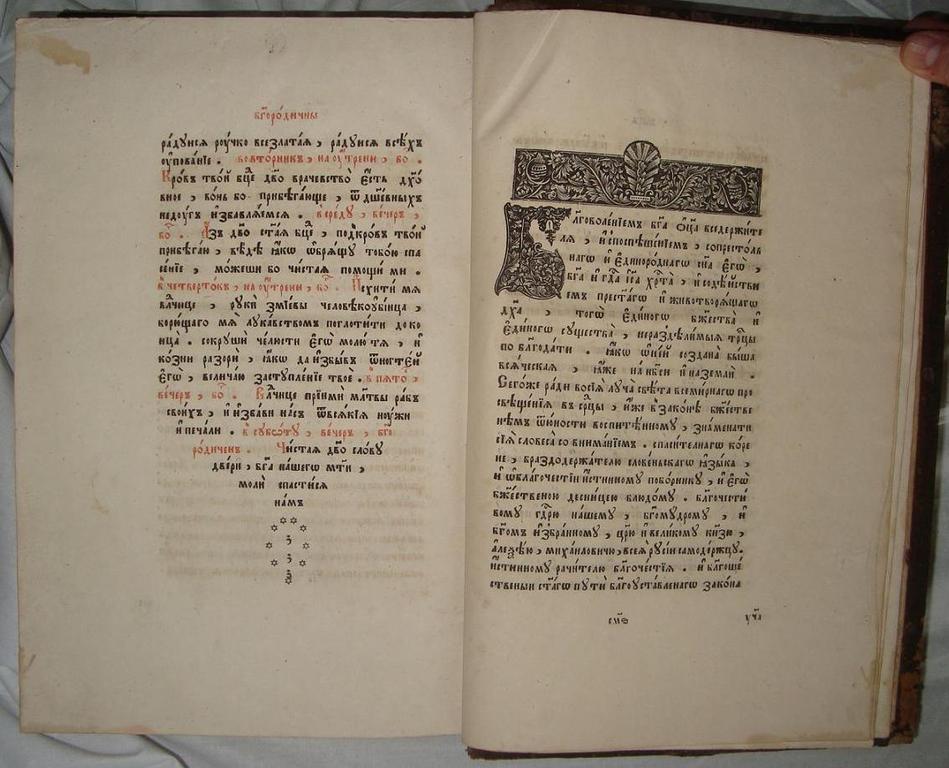 бг҃оро́дичны
ра́дꙋисѧ рꙋ́чко всезлата́ѧ , ра́дꙋисѧ всѣ́хъ
ѹ҆пова́нїе . во вто́рникъ , на ѹ҆́трени , бо .
Кро́въ тво́й бц҃е дв҃о врачевство̀ є҆́сть дх҃о
вное , во́нь бо прибѣга́юще , ѿ дш҃е́вныхъ
недꙋ́гъ и҆збавлѧ́емсѧ . в сре́дꙋ , ве́черъ ,
бо . А҆́зъ дв҃о ст҃а́ѧ бц҃е , под̾ кро́въ тво́й
прибѣга́ю , вѣ́дѣ ꙗ҆́кѡ ѡ҆брѧ́щꙋ тобо́ю спа
се́нїе , мо́жеши бо чи́стаѧ помощѝ ми .
в четверто́къ , на ѹ҆́трени , бо . Похи́ти мѧ
влⷣчце , рꙋкѝ змі́евы человѣкоꙋбі́ица ,
борю́щаго мѧ̀ лꙋка́вствомъ поглоти́ти до ко
нца̀ . сокрꙋшѝ че́люсти є҆гѡ̀ молю́ тѧ , и҆
ко́зни разорѝ , ꙗ҆́кѡ да и҆збы́въ ѿ ногте́й
є҆гѡ̀ , велича́ю застꙋпле́нїе твоѐ . в пѧто́ ,
ве́черъ , бо . Влⷣчице прїимѝ мл҃твы ра́бъ
свои́хъ , и҆ и҆зба́ви на́съ ѿ всѧ́кїѧ нꙋ́жи
и҆ печа́ли . в сꙋббѡ́тꙋ , ве́черъ , бг҃о
ро́диченъ . Чи́стаѧ дв҃о сло́вꙋ
две́ри , бг҃а на́шегѡ мт҃и ,
молѝ спасти́сѧ
на́мъ
Бл҃говоле́нїемъ бг҃а ѻ҆ц҃а̀ вседержи́те
лѧ , и҆ споспѣше́нїемъ , сопресто́лъ
нагѡ и҆ є҆диноро́днагѡ сн҃а є҆гѡ̀ ,
бг҃а и҆ гдⷭ҇а і҆са хрⷭ҇та̀ , и҆ содѣ́йстви
емъ прест҃а́гѡ и҆ животворѧ́щагѡ
дх҃а , тогѡ̀ є҆ди́ногѡ бж҃ества̀ и҆
є҆ди́ногѡ сꙋщества̀ , нераздѣли́мыѧ трⷪ҇цы
по бл҃года́ти . ꙗ҆́кѡ ѿ не́й со́здана бы́ша
всѧ́ческаѧ , ꙗ҆̀же на нб҃сѝ и҆ на землѝ .
Сегѡ́же ра́ди возсїѧ̀ лꙋча̀ свѣ́та всеми́рнагѡ про
свѣще́нїѧ въ срⷣцы , и҆́же в зако́нѣ бж҃е́стве
нѣмъ ѿ ю҆́ности воспита́нномꙋ , знамена́ти
сїѧ̀ словеса̀ со внима́нїемъ . спаси́телнагѡ ко́ре
не , браздодержа́телю слове́ньскагѡ ꙗ҆зы́ка ,
и҆ ѡ҆ бл҃гоче́стїи и҆́стинномꙋ побо́рникꙋ , и҆ є҆гѡ̀
бж҃е́ственою десни́цею блюдо́мꙋ . бл҃гочести́
вомꙋ гдⷭ҇рю на́шемꙋ , бг҃омꙋ́дромꙋ , и҆
бг҃омъ и҆збра́нномꙋ , цр҃ю̀ и҆ вели́комꙋ кн҃зю ,
а҆леѯѣ́ю , миха́иловичю , всеѧ̀ рꙋсі́и самоде́ржцꙋ .
и҆́стинномꙋ рачи́телю бл҃гоче́стїѧ . и҆ бл҃гоше́
ственыи ст҃а́гѡ пꙋтѝ бл҃гоꙋста́вленагѡ зако́на
см҃ѳ ꙋч҃а